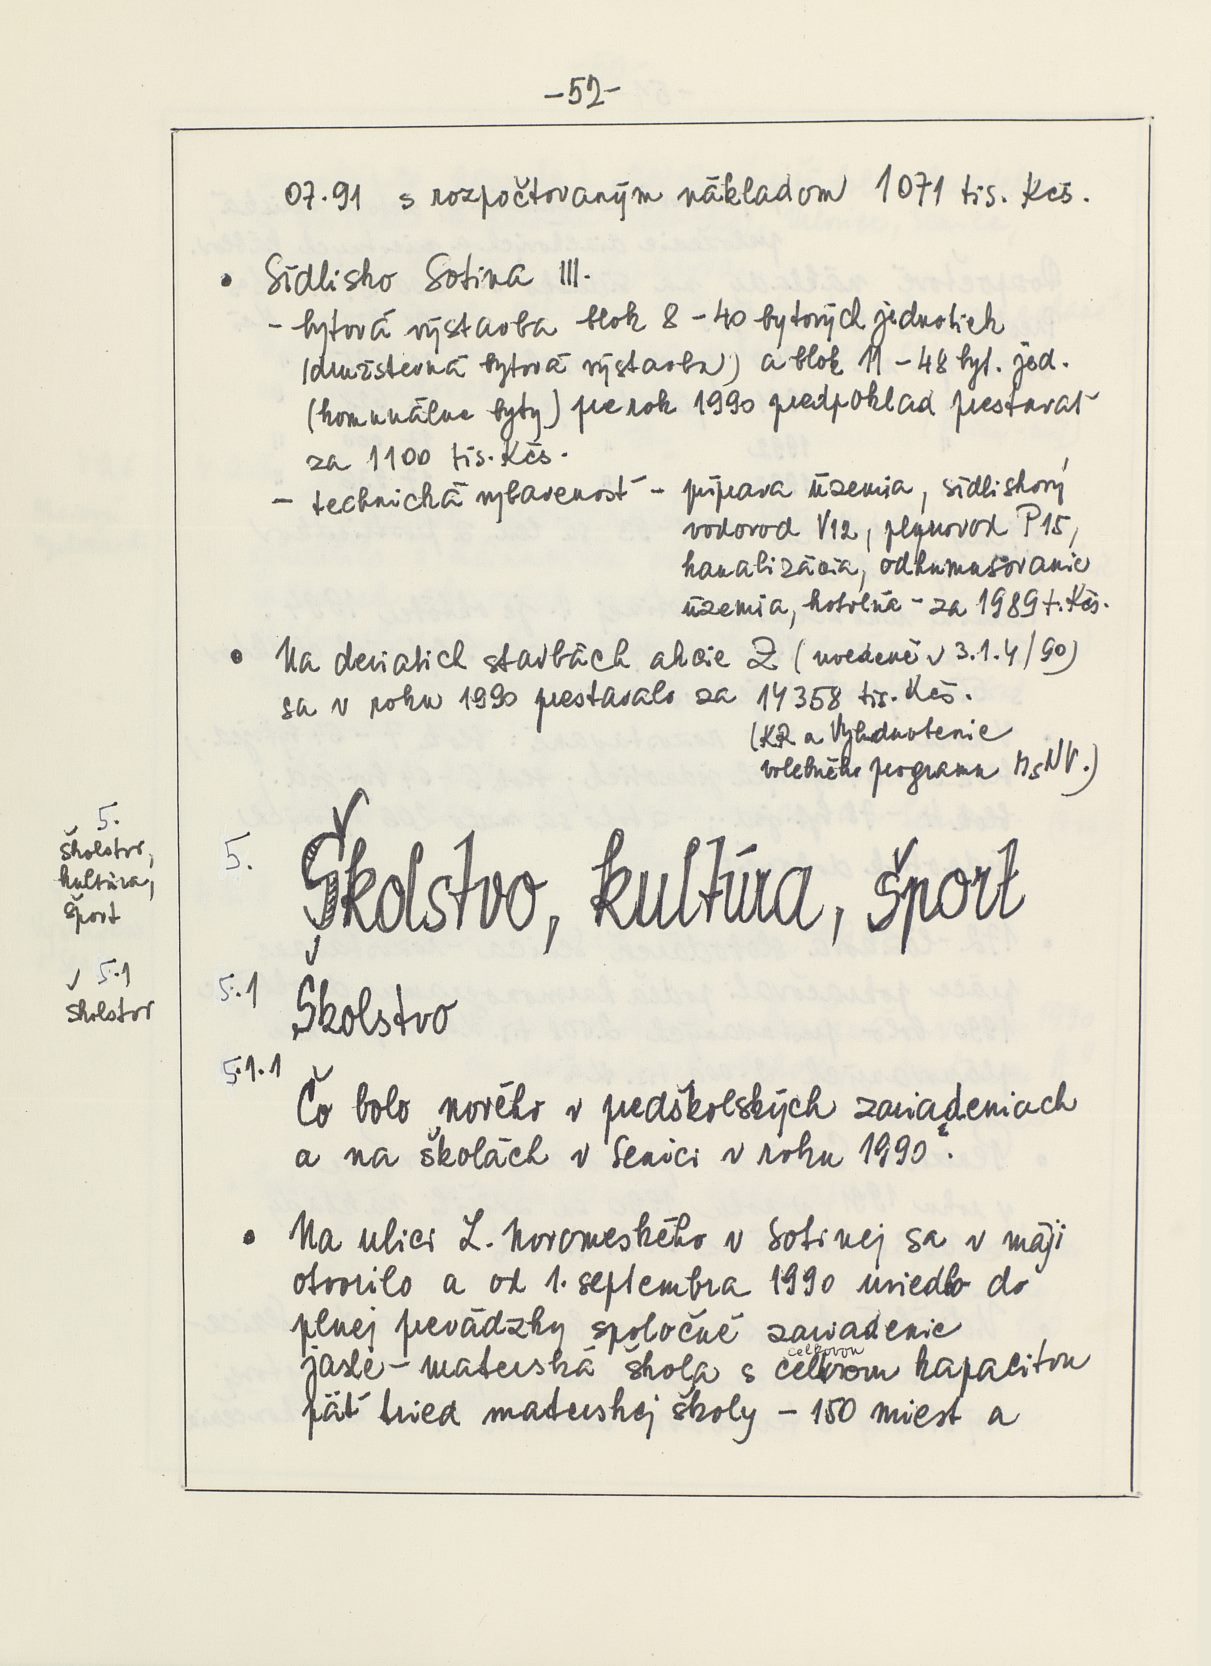 -52-
07.91 s rozpočtovaným nákladom 1071 tis. Kčs.
• Sídlisko Sotina III.
- bytová výstavba blok 8 - 40 bytových jednotiek
(družstevná bytová výstavba) a blok 11 - 48 byt. jed.
(komunálne byty) pre rok 1990 predpoklad prestavať
za 1100 tis. Kčs.
- technická vybavenosť - príprava územia, sídliskový
vodovod V12, plynovod P15,
kanalizácia, odhumusovanie
územia, kotolňa - za 1989 t. Kčs.
• Na deviatich stavbách akcie Z (uvedené v 3.1.4/90)
sa v roku 1990 prestavalo za 14358 tis. Kčs.
(KR a Vyhodnotenie
volebného programu MsNV.)
5.
Školstvo,
kultúra,
šport
5. Školstvo, kultúra, šport
✓ 5.1
školstvo
5.1 Školstvo
5.1.1
Čo bolo nového v predškolských zariadeniach
a na školách v Senici v roku 1990?
• Na ulici L. Novomeského v Sotinej sa v máji
otvorilo a od 1. septembra 1990 uviedlo do
plnej prevádzky spoločné zariadenie
celkovou
jasle - materská škola s celkvom kapacitou
päť tried materskej školy - 150 miest a